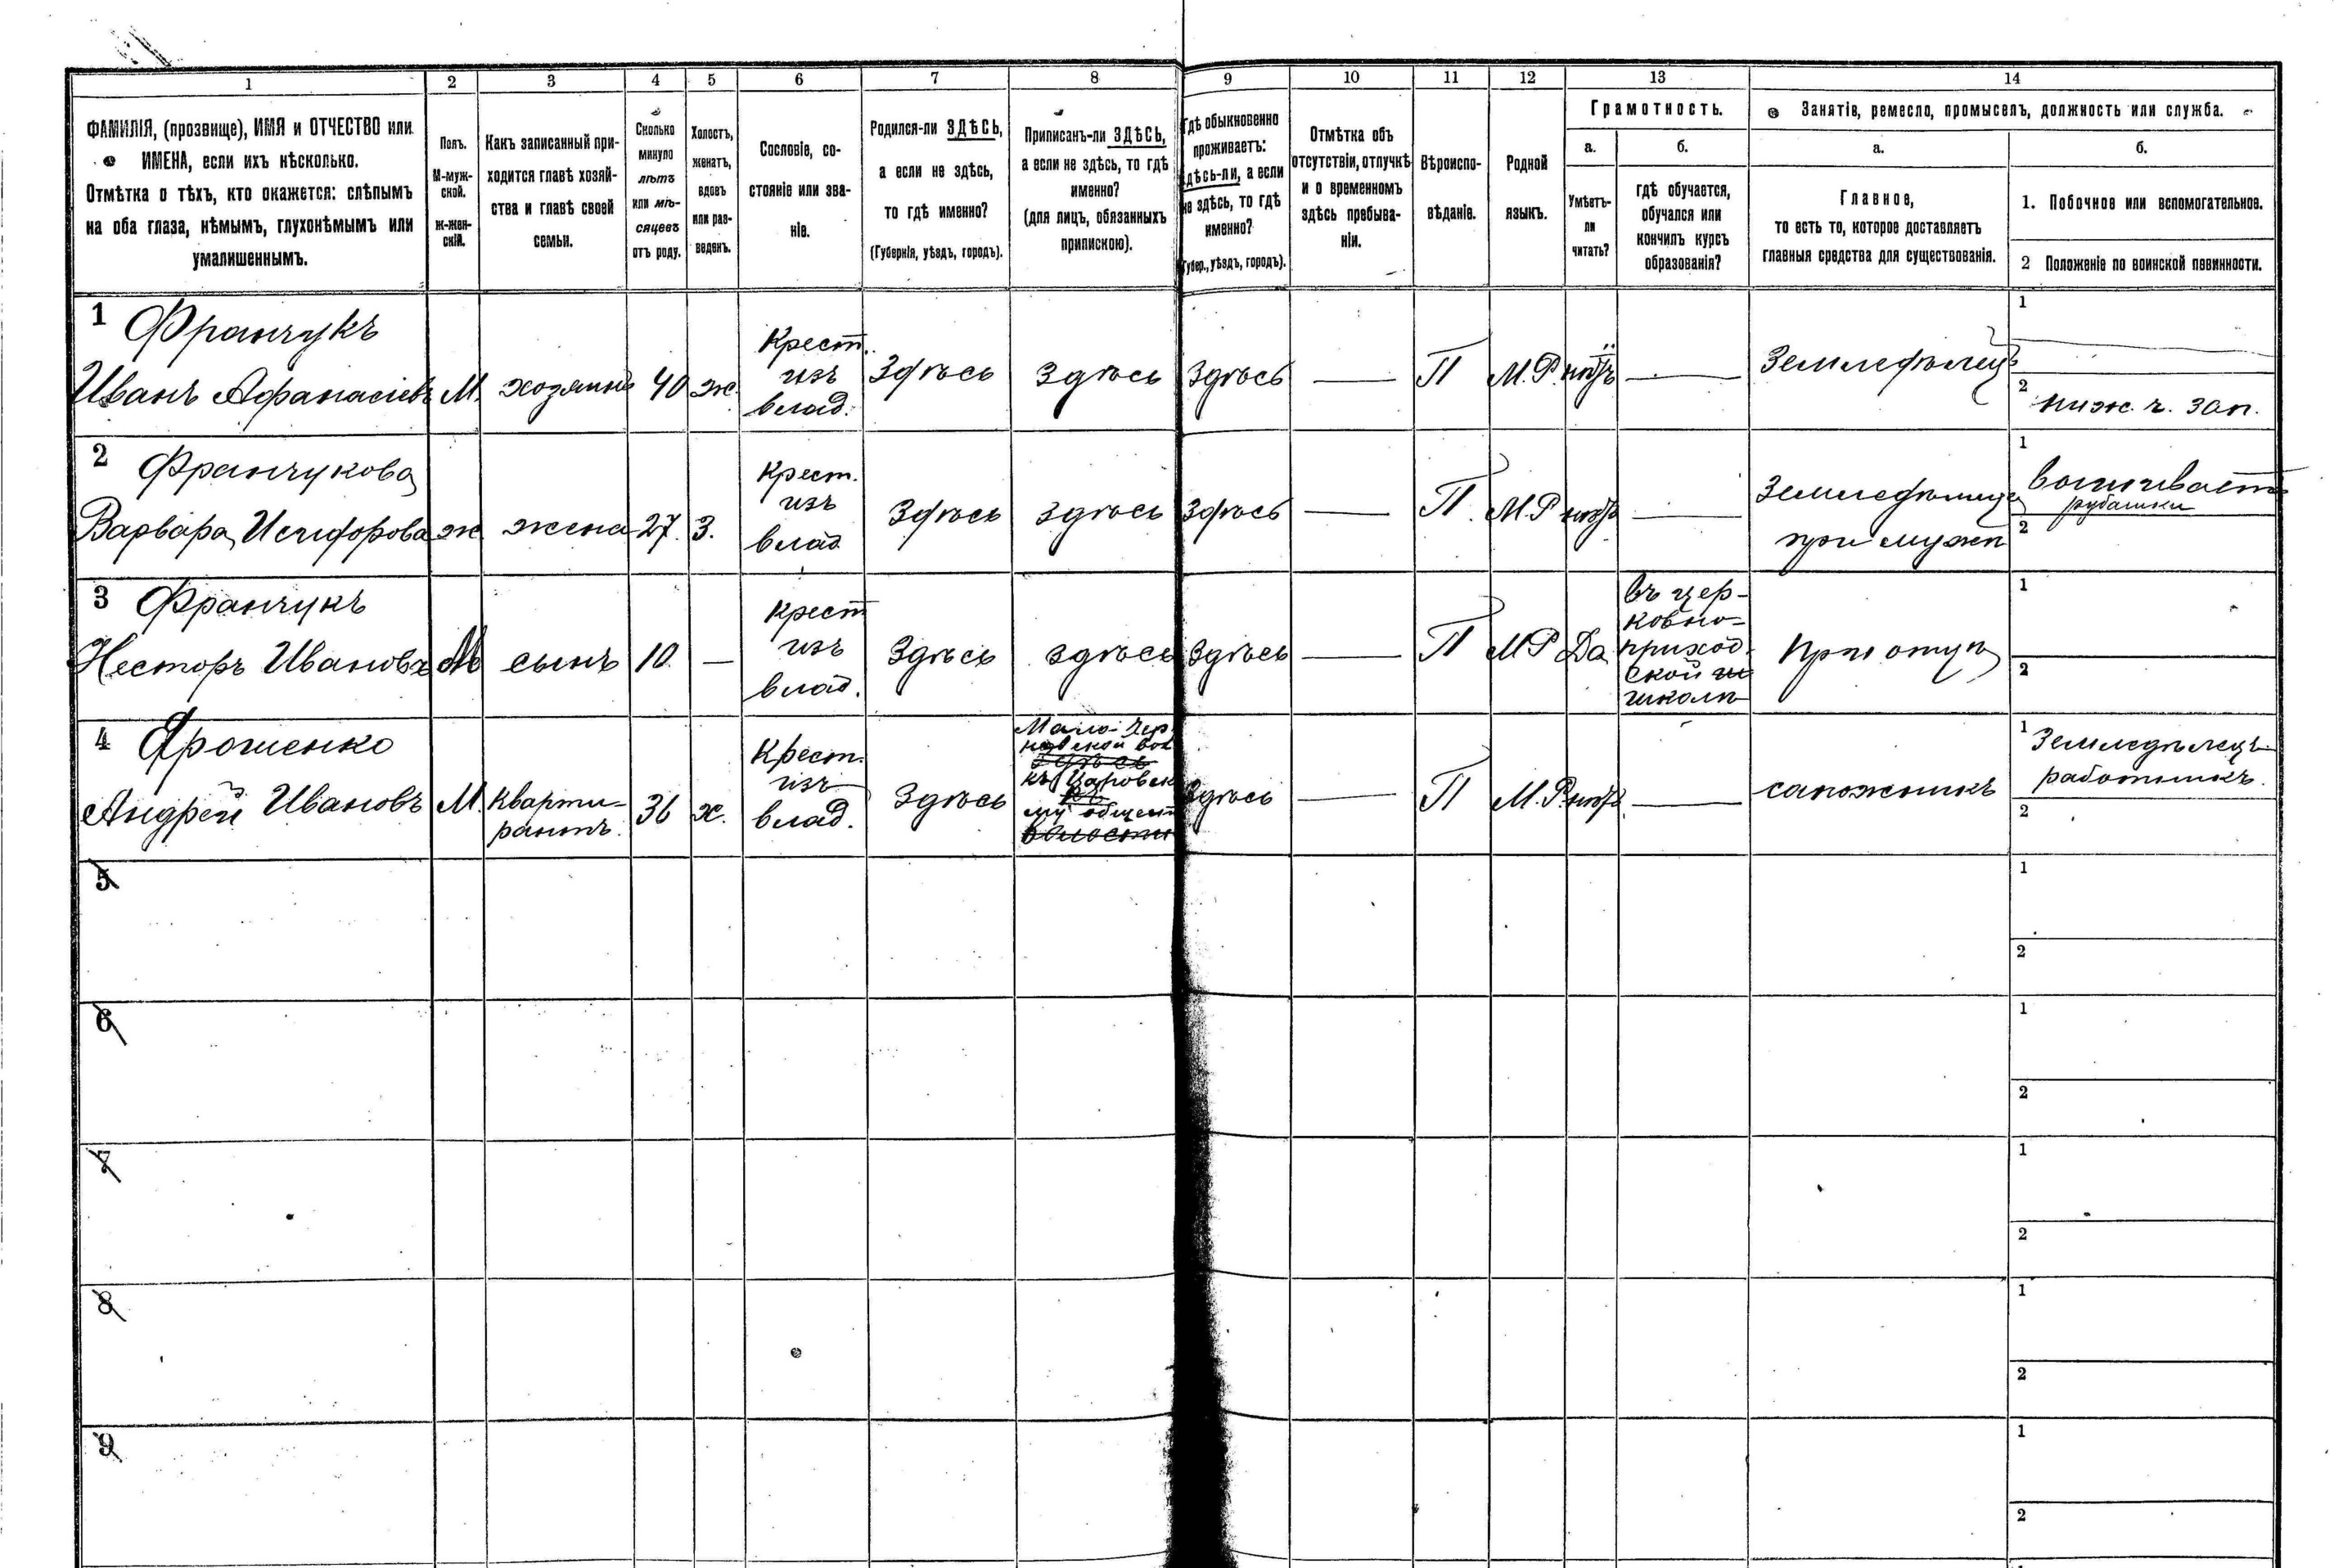 1 2 3 4 5 6 7 8 9 10 11 12 13 14
ФАМИЛІЯ, (прозвище), ИМЯ и ОТЧЕСТВО или
ИМЕНА, если ихъ нѣсколько.
Отмѣтка о тѣхъ, кто окажется: слѣпымъ
на оба глаза, нѣмымъ, глухонѣмымъ или
умалишеннымъ.
Полъ.
М-муж-
ской.
ж-жен-
скій.
Какъ записанный при-
ходится главѣ хозяй-
ства и главѣ своей
семьи.
Сколько
минуло
лѣтъ
или мѣ-
сяцевъ
отъ роду.
Холостъ,
женатъ,
вдовъ
или раз-
веденъ.
Сословіе, со-
стояніе или зва-
ніе.
Родился-ли ЗДѢСЬ,
а если не здѣсь,
то гдѣ именно?
(Губернія, уѣздъ, городъ).
Приписанъ-ли ЗДѢСЬ,
а если не здѣсь, то гдѣ
именно?
(для лицъ, обязанныхъ
припискою).
Гдѣ обыкновенно
проживаетъ:
здѣсь-ли, а если
не здѣсь, то гдѣ
именно?
(Губер., уѣздъ, городъ).
Отмѣтка объ
отсутствіи, отлучкѣ
и о временномъ
здѣсь пребыва-
ніи.
Вѣроиспо-
вѣданіе.
Родной
языкъ.
Грамотность.
а.
Умѣетъ-
ли
читать?
б.
гдѣ обучается,
обучался или
кончилъ курсъ
образованія?
Занятіе, ремесло, промыселъ, должность или служба.
а.
Главное,
то есть то, которое доставляетъ
главныя средства для существованія.
б.
1. Побочное или вспомогательное.
2 Положеніе по воинской повинности.
1 Франчукъ
Иванъ Афанасіевъ
М.
хозяинъ
40
ж.
Крест.
изъ
влад.
Здѣсь
здѣсь
здѣсь
—
П
М.Р.
нѣтъ
—
Земледѣлецъ
1
2
ниж. ч. зап.
2 Франчукова
Варвара Исидорова
ж
жена
27.
З.
Крест.
изъ
влад
Здѣсь
здѣсь
здѣсь
—
П.
М.Р
нѣтъ
—
Земледѣлица
при мужѣ
1
вышиваетъ
рубашки
2
3 Франчукъ
Несторъ Ивановъ
М
сынъ
10.
—
Крест
изъ
влад.
Здѣсь
здѣсь
здѣсь
—
П
М Р
Да
въ цер-
ковно-
приход-
ской
школѣ
При отцѣ
1
2
4 Ярошенко
Андрей Ивановъ
М.
кварти-
рантъ.
36
ж.
Крест.
изъ
влад.
Здѣсь
Мало-Чер
здѣсь
му общест
волости
здѣсь
—
П
М.Р.
нѣтъ.
—
сапожникъ
1 Земледѣлецъ-
работникъ.
2
5
1
2
6
1
2
7
1
2
8
1
2
9
1
2